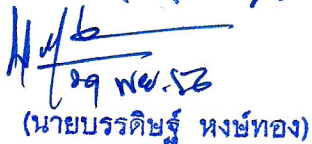 29 พย. 56
(นายบรรดิษฐ์ หงษ์ทอง)